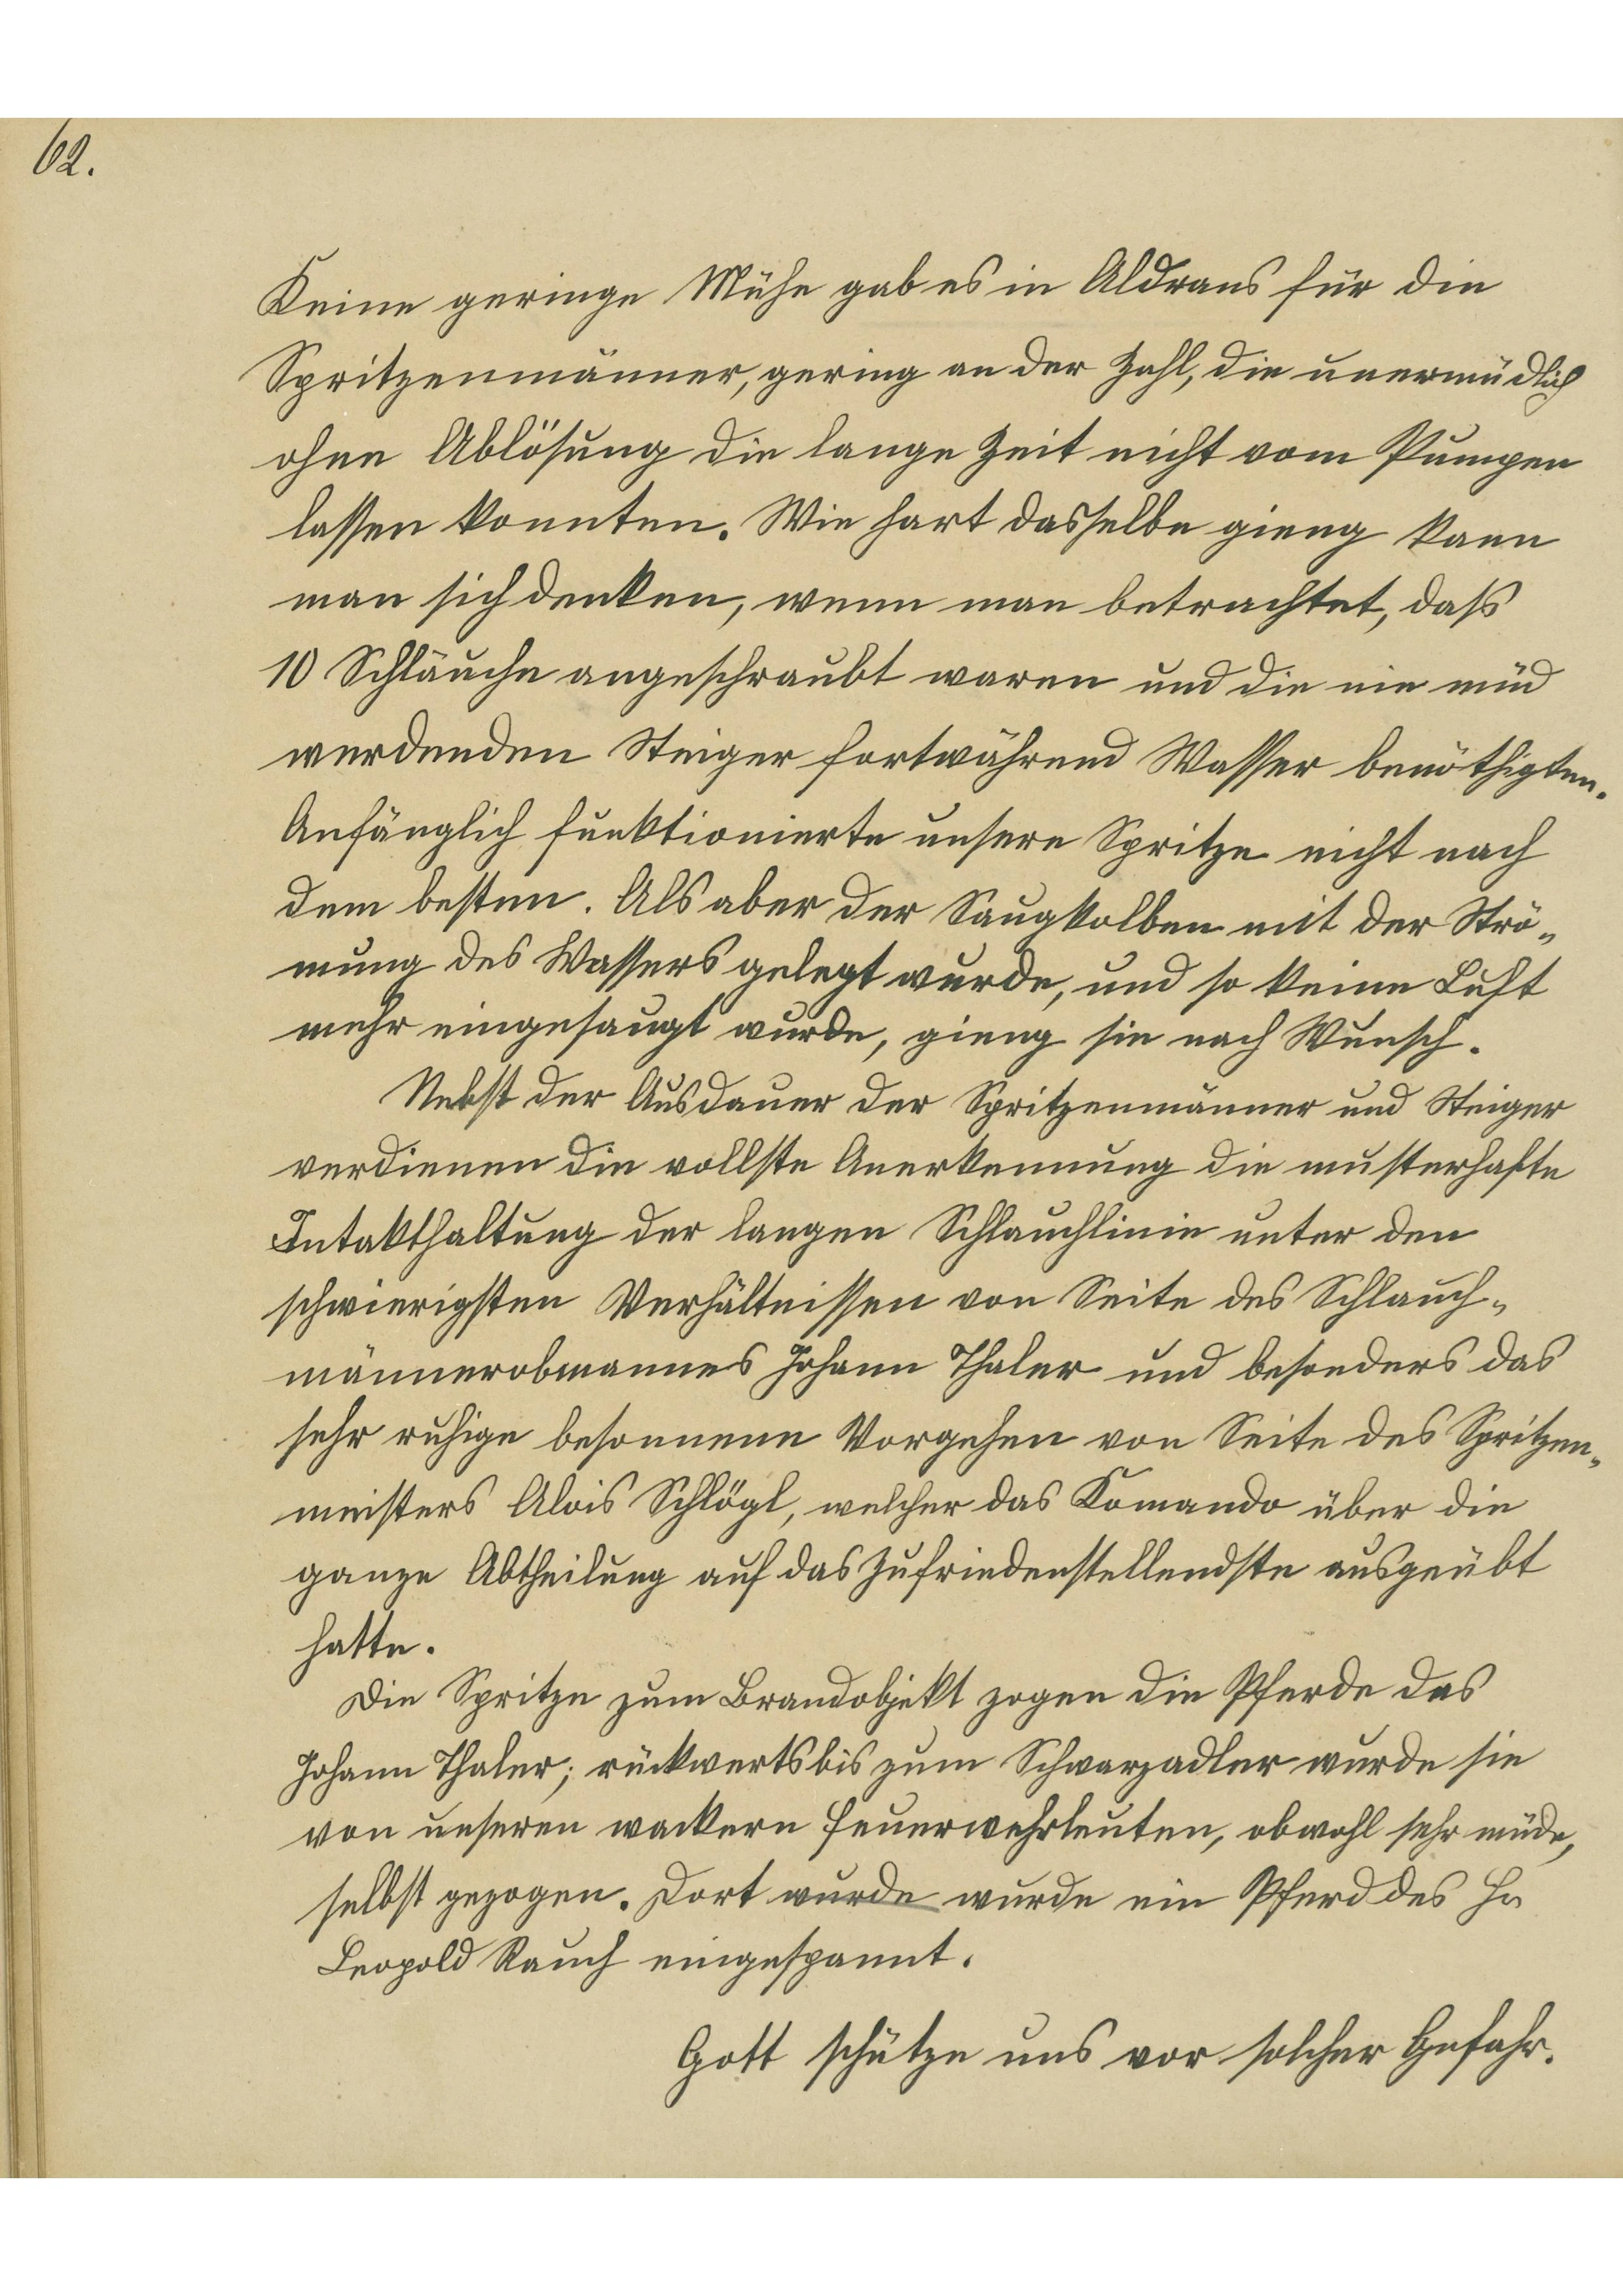 62.
Keine geringe Mühe gab es in Aldrans für die
Spritzenmänner, gering an der Zahl, die unermüdlich
ohne Ablösung die lange Zeit nicht vom Pumpen
lassen konnten. Wie hart dasselbe gieng kann
man sich denken, wenn man betrachtet, daß
10 Schläuche angeschraubt waren und die nie müd
werdenden Steiger fortwährend Wasser benöthigten.
Anfänglich funktionierte unsere Spritze nicht nach
dem besten. Als aber der Saugkolben mit der Strö-
mung des Wassers gelegt wurde, und so keine Luft
mehr eingesaugt wurde, gieng sie nach Wunsch.
Nebst der Ausdauer der Spritzenmänner und Steiger
verdienen die vollste Anerkennung die musterhafte
Intakthaltung der langen Schlauchlinie unter den
schwierigsten Verhältnissen von Seite des Schlauch-
männerobmannes Johann Thaler und besonders das
sehr ruhige besonnene Vorgehen von Seite des Spritzen-
meisters Alois Schlögl, welcher das Komando über die
ganze Abtheilung auf das Zufriedenstellendste ausgeübt
hatte.
Die Spritze zum Brandobjekt zogen die Pferde des
Johann Thaler; rückwerts bis zum Schwarzadler wurde sie
von unseren wackern Feuerwehrleuten, obwohl sehr müde,
selbst gezogen. Dort wurde wurde ein Pferd des Hr
Leopold Rauch eingespannt.
Gott schütze uns vor solcher Gefahr.